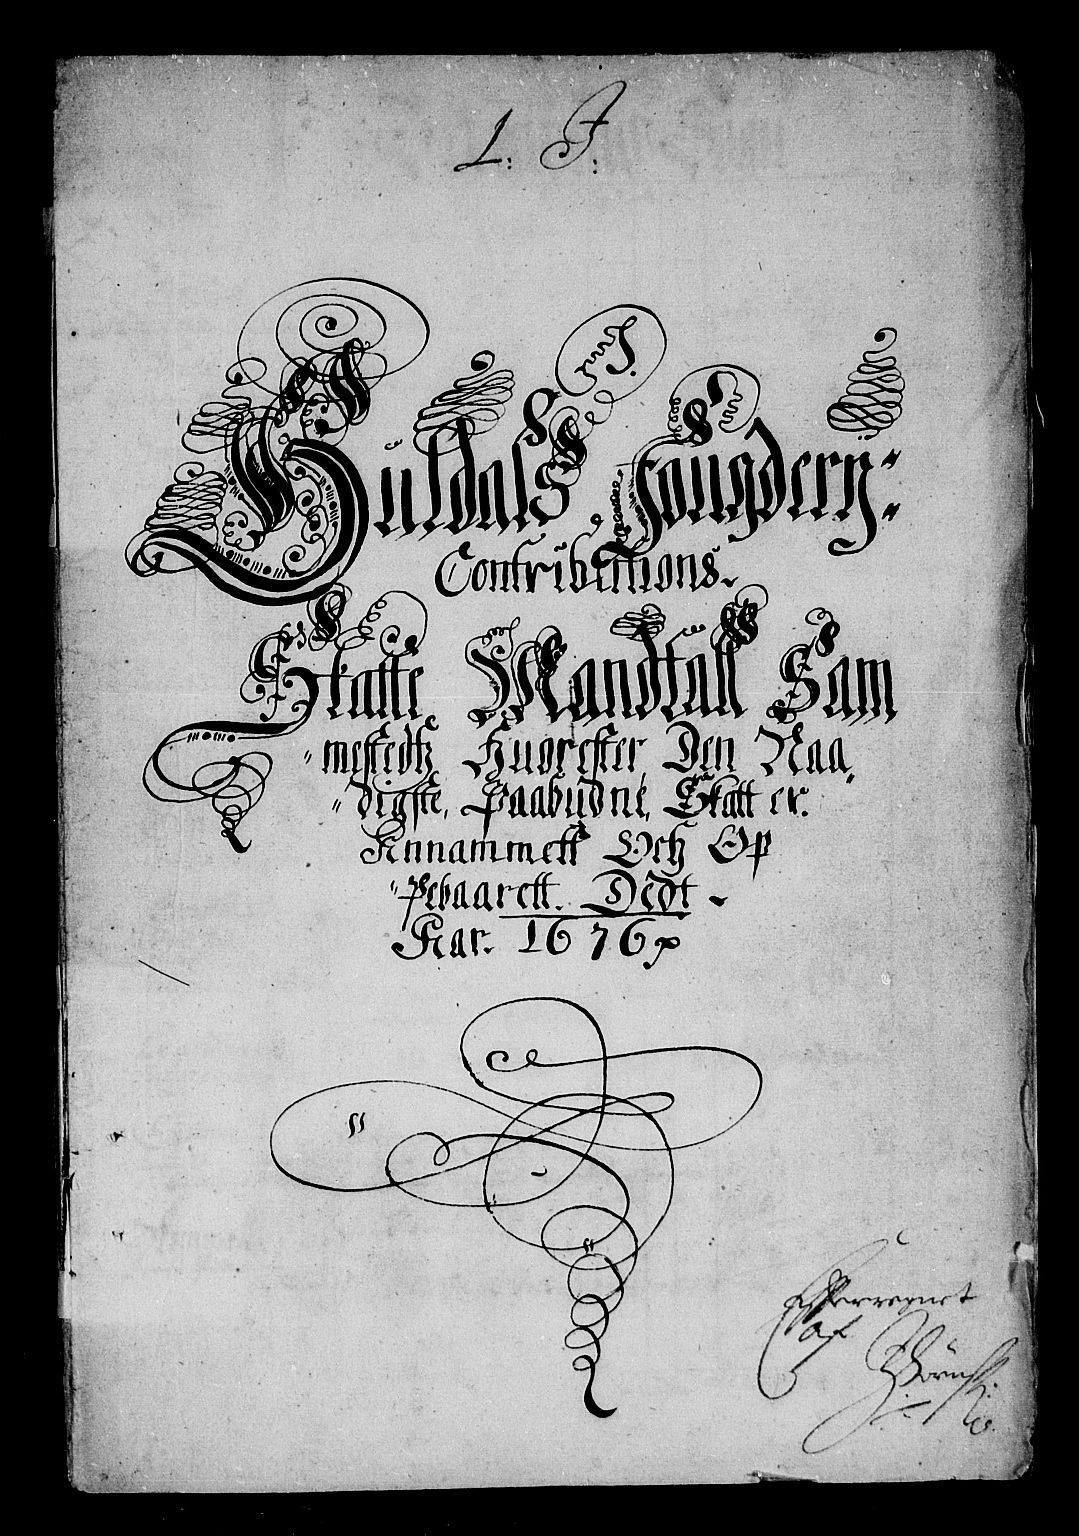 L: J:
Guldals fougdery:
Contributions.
Skatte Mandtall Sam
"mestedtz Huorefter Den Naa
"digste, Paabudne, Skatt er.
Annammett Och Op
"pebaarett. Dedt
Aar. 1676
Efterregnet
af